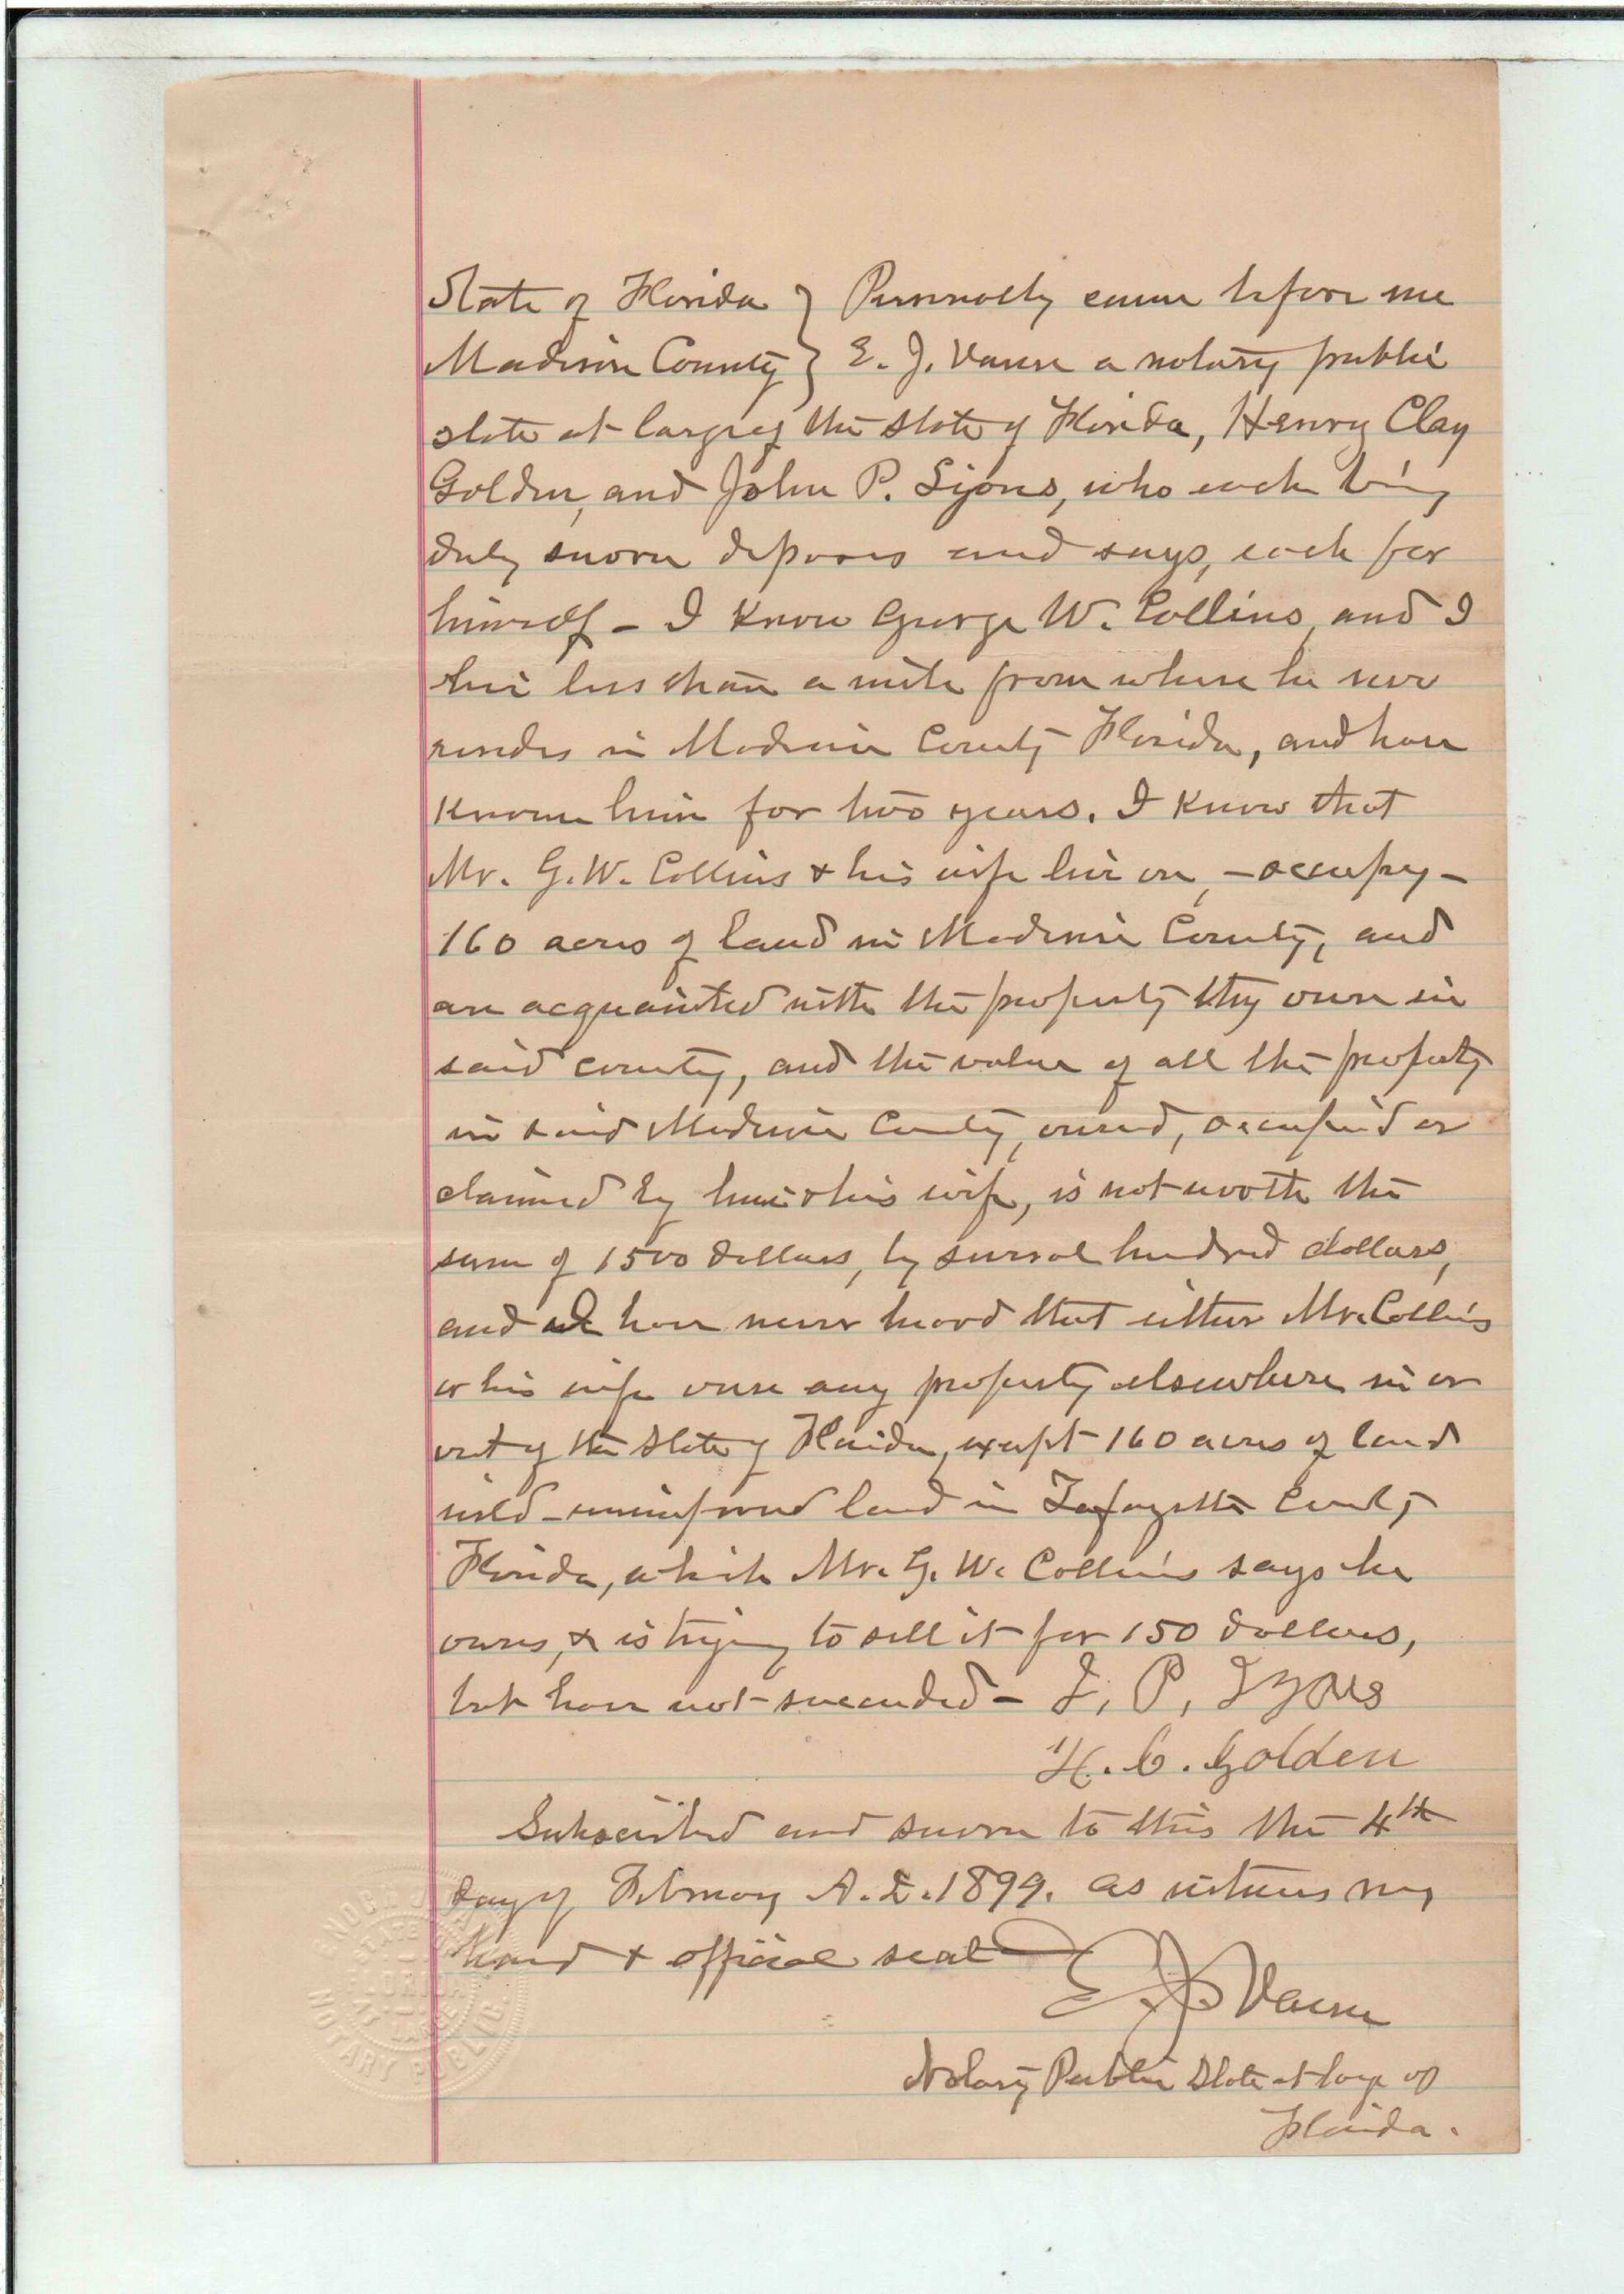 State of Florida } Personally came before me
Madison County } E. J. Vann a notary public
state at large of the State of Florida, Henry Clay
Golden, and John P. Lyons, who each being
duly sworn deposes and says, each for
himself - I know George W. Collins, and I
live less than a mile from where he now
resides in Madison County Florida, and have
known him for two years. I know that
Mr. G. W. Collins & his wife live on, - occupy -
160 acres of land in Madison County, and
am acquainted with the property they own in
said county, and the value of all the property
in said Madison County, owned, occupied or
claimed by him & his wife, is not worth the
sum of 1500 dollars, by several hundred dollars,
and I have never heard that either Mr. Collins
or his wife own any property elsewhere in or
out of the State of Florida, except 160 acres of land
wild - unimproved land in Lafayette County
Florida, which Mr. G. W. Collins says he
owns, & is trying to sell it for 150 dollars,
but have not succeeded - J. P. Lyons
H. C. Golden
Subscribed and sworn to this the 4th
day of February A.D. 1899. as witness my
hand & official seal
E. J. Vann
Notary Public State at large of
Florida.
ENOCH J.
STATE
FLORIDA
AT LARGE
NOTARY PUBLIC.